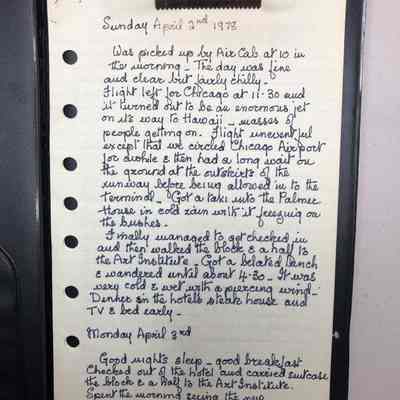 Sunday April 2nd 1978
Was picked up by Air Cab at 10 in
the morning - The day was fine
and clear but fairly chilly -
Flight left for Chicago at 11.30 and
it turned out to be an enormous jet
on its way to Hawaii - masses of
people getting on. Flight uneventful
except that we circled Chicago Airport
for awhile & then had a long wait on
the ground at the outskirts of the
runway before being allowed in to the
terminal - Got a taxi into the Palmer
House in cold rain with it freezing on
the bushes.
Finally managed to get checked in
and then walked the block & a half to
the Art Institute - Got a belated lunch
& wandered until about 4.30 - It was
very cold & wet with a piercing wind -
Dinner in the hotels steak house and
TV & bed early -
Monday April 3rd
Good nights sleep - good breakfast
Checked out of the hotel and carried suitcase
the block & a half to the Art Institute.
Spent the morning seeing the